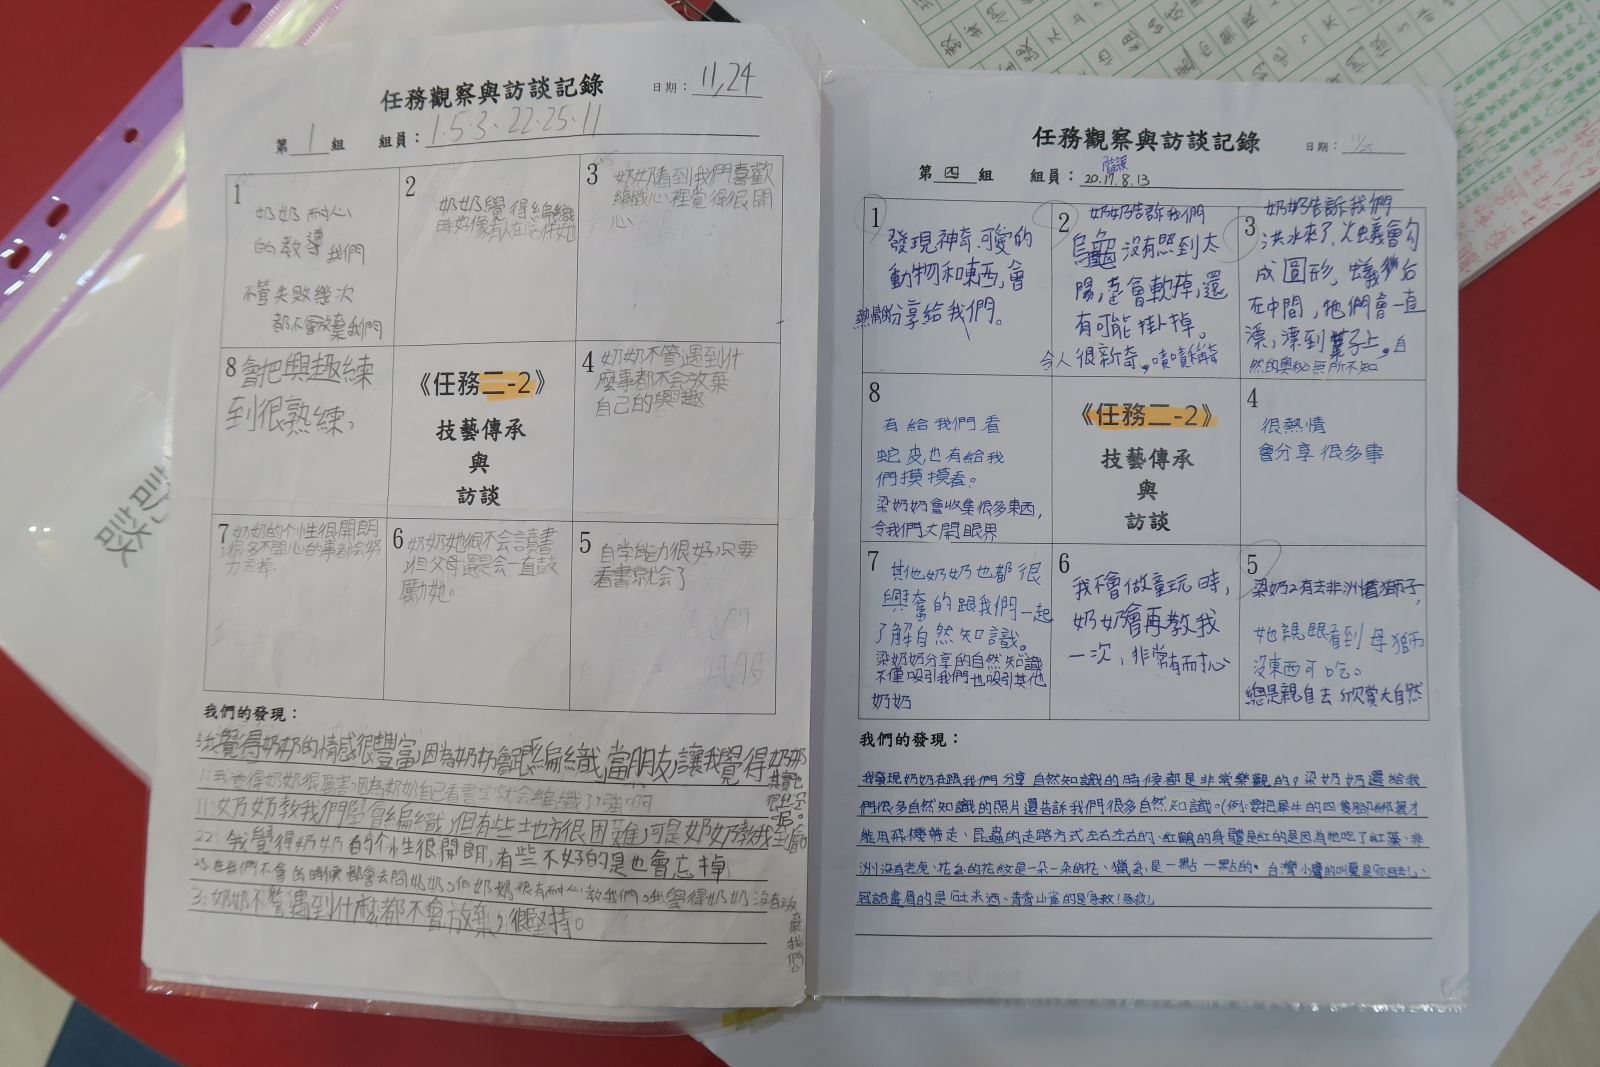 任務觀察與訪談記錄
日期：11,24
第 1 組 組員：1.5.3.22.25.11
1
奶奶耐心
的教導我們
不管失敗幾次
都不會放棄我們
2
奶奶覺得編織
時好像有人在陪伴她
3
奶奶看到我們喜歡
編織心裡覺得很開
心
8會把興趣練
到很熟練。
《任務二-2》
技藝傳承
與
訪談
4
奶奶不管遇到什
麼事都不会放棄
自己的興趣
7 奶奶的个性很開朗
,很多不開心的事都会努
力忘掉.
6 奶奶她很不会讀書
,但父母還是会一直鼓
勵她。
5
自学能力很好,只要
看書就会了
我們的發現：
5:我覺得奶奶的情感很豐富,因為奶奶會跟編織當朋友讓我覺得奶奶
11:我覺得奶奶很厲害,因為奶奶自己看書字就会編織了
11:奶奶教我們留會編織,但有些地方很困難,可是奶奶教我到會
22:我覺得奶奶的个性很開朗,有些不好的是也會忘掉
25:在我們不會的時候都會去問奶奶,但奶奶很有耐心教我們,我覺得奶奶沒有放
棄我們。
3:奶奶不管遇到什麼都不會放棄,很堅持。
任務觀察與訪談記錄
日期：11/25
第 四 組 組員：20.17.8.13
1
發現神奇、可愛的
動物和東西,會
熱情的分享給我們。
2 奶奶告訴我們
烏龜沒有照到太
陽,壳會軟掉,還
有可能掛掉。
令人很新奇。嘖嘖稱奇
3 奶奶告訴我們
洪水來了,火蟻會勾
成圓形,蟻後右
在中間,牠們會一直
漂,漂到葉子上。自
然的奧秘無所不知
8
有給我們看
蛇皮也有給我
們摸摸看。
梁奶奶會收集很多東西,
令我們大開眼界
《任務二-2》
技藝傳承
與
訪談
4
很熱情
會分享很多事
7
其他奶奶也都很
興奮的跟我們一起
了解自然知識。
梁奶奶分享的自然知識
不僅吸引我們也吸引其他
奶奶
6
我不會做童玩時,
奶奶會再教我
一次,非常有耐心
5
梁奶奶有去非洲看獅子,
她親眼看到母獅
沒東西可吃。
總是親自去欣賞大自然
我們的發現：
我發現奶奶在跟我們分享自然知識的時候都是非常樂觀的,梁奶奶還給我
們很多自然知識的照片還告訴我們很多自然知識。(例:要把犀牛的四隻腳都綁著才
能用飛機帶走、昆蟲的走路方式左右左右的、紅鶴的身體是紅的是因為他吃了紅藻、非
洲沒有老虎、花豹的花紋是一朵一朵的花、獵豹是一點一點的。台灣小鶯的叫聲是「你回去!」、
冠語畫眉的是「吐米酒」、青背山雀的是「急救!急救!」
訪談